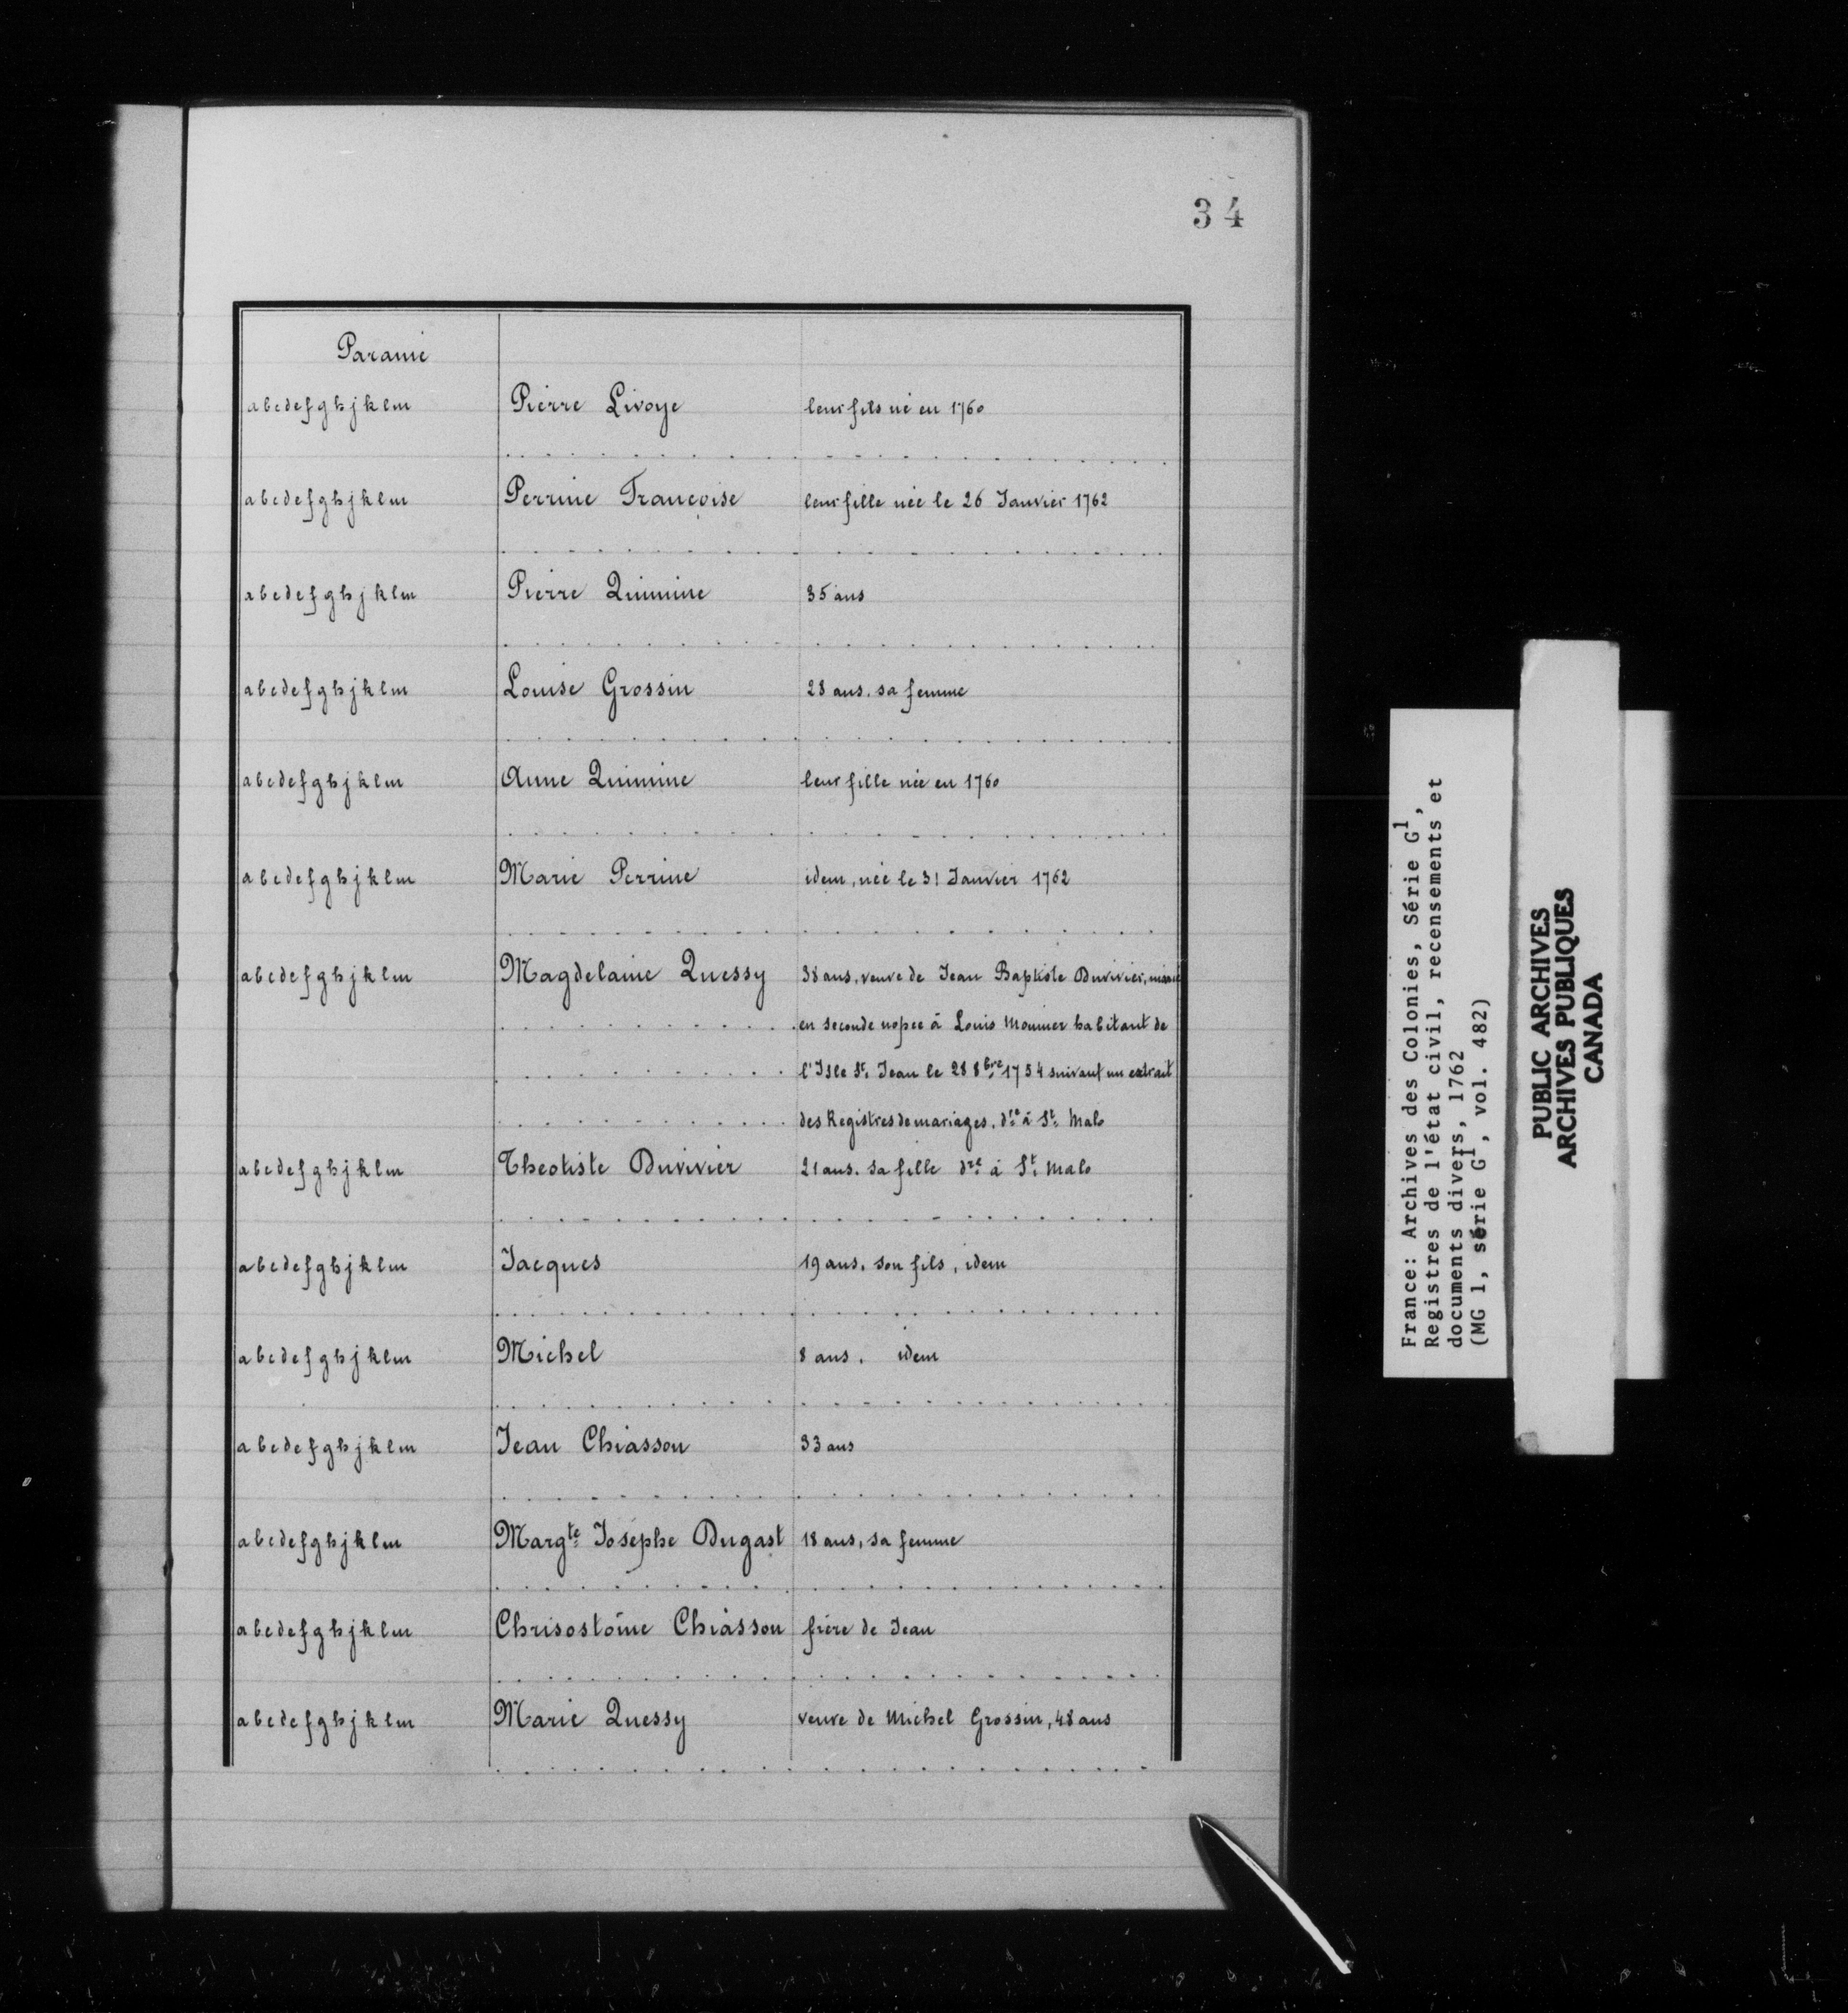 34
Paramé
abcdefghjklm Pierre Livoye leur fils né en 1760
abcdefghjklm Perrine Françoise leur fille née le 26 Janvier 1762
abcdefghjklm Pierre Quimine 35 ans
abcdefghjklm Louise Grossin 28 ans, sa femme
abcdefghjklm Anne Quimine leur fille née en 1760
abcdefghjklm Marie Perrine idem, née le 31 Janvier 1762
abcdefghjklm Magdelaine Quessy 38 ans, veuve de Jean Baptiste Duvivier, mariée
en seconde nopce à Louis Mounier habitant de
l'Isle St. Jean le 28 8bre 1754 suivant un extrait
des Registres de mariages. dre à St. Malo
abcdefghjklm Theotiste Duvivier 21 ans. sa fille dre à St. Malo
abcdefghjklm Jacques 19 ans, son fils, idem
abcdefghjklm Michel 8 ans, idem
abcdefghjklm Jean Chiasson 33 ans
abcdefghjklm Margte Josephe Dugast 18 ans, sa femme
abcdefghjklm Chrisostôme Chiasson frère de Jean
abcdefghjklm Marie Quessy veuve de Michel Grossin, 48 ans
France: Archives des Colonies, Série G1,
Registres de l'état civil, recensements et
documents divers, 1762
(MG 1, série G1, vol. 482)
PUBLIC ARCHIVES
ARCHIVES PUBLIQUES
CANADA